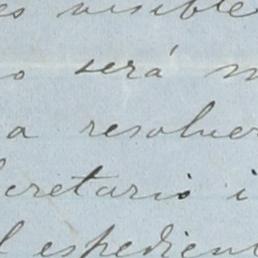 es visible
o será m
a resolver
cretario i
l espedient